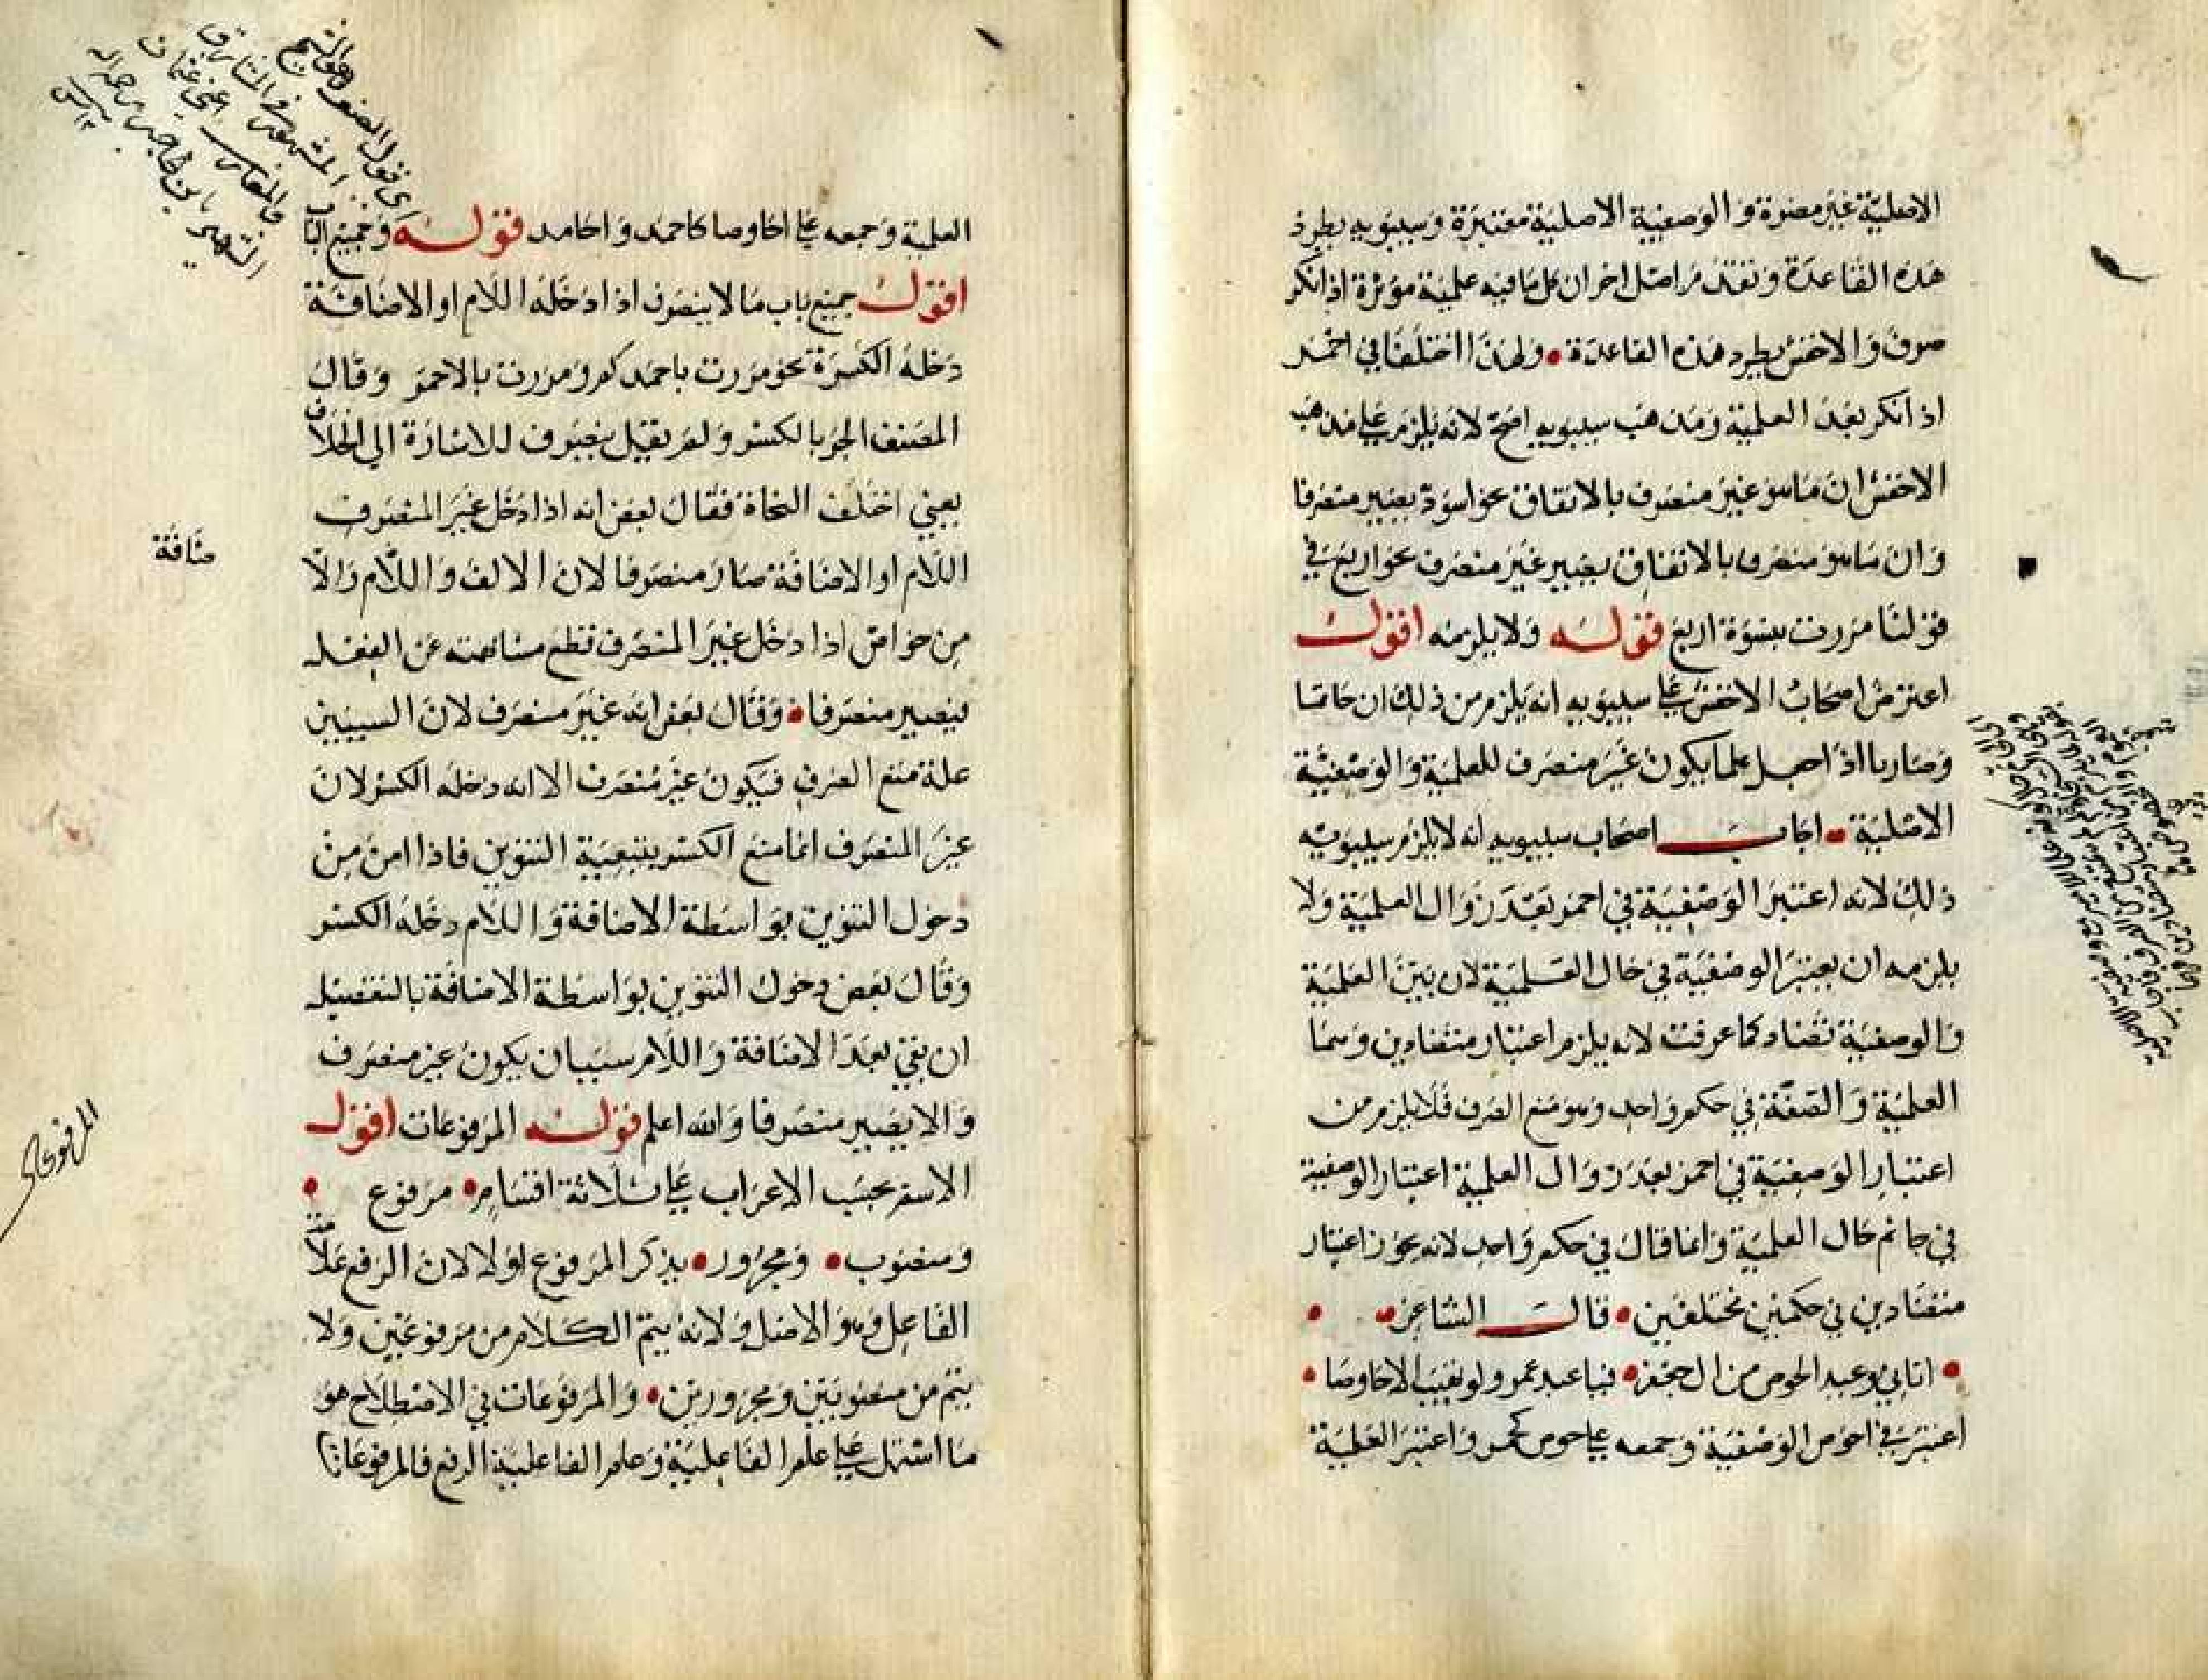 الاصلية غير مضرة والوصفية الاصلية معتبرة وسيبويه يطرد
هذه القاعدة وتقدم اصل اخر ان كل ما فيه علمية مؤثرة اذا نكر
صرف والاخفش يطرد هذه القاعدة • ولهذا اختلفا في احمر
اذا نكر بعد العلمية ومذهب سيبويه اصح لانه يلزم على مذهب
الاخفش ان ما هو غير منصرف بالاتفاق نحو اسود يصير منصرفا
وان ما هو منصرف بالاتفاق يصير غير منصرف نحو اربع في
قولنا مررت بنسوة اربع قوله ولا يلزمه اقول
اعترض اصحاب الاخفش على سيبويه انه يلزم من ذلك ان حاتما
وضاربا اذا جعل علما يكون غير منصرف للعلمية والوصفية
الاصلية • اجاب اصحاب سيبويه انه لا يلزم سيبويه
ذلك لانه اعتبر الوصفية في احمر بعد زوال العلمية ولا
يلزمه ان يعتبر الوصفية في حال العلمية لان بين العلمية
والوصفية تضاد كما عرفت لانه يلزم اعتبار متضادين وهما
العلمية والصفة في حكم واحد وهو منع الصرف فلا يلزم من
اعتبار الوصفية في احمر بعد زوال العلمية اعتبار الوصفية
في حاتم حال العلمية وانما قال في حكم واحد لانه يجوز اعتبار
متضادين في حكمين مختلفين • قال الشاعر • •
• اتاني وعيد الحوص من ال جعفر • فيا عبد عمرو لو نهيت الاحاوصا •
اعتبر في احوص الوصفية وجمعه على حوص كحمر واعتبر العلمية
العلمية وجمعه على احاوصا كاحمد واحامد قوله وجميع الباب
اقول جميع باب ما لا ينصرف اذا دخله اللام او الاضافة
دخله الكسرة نحو مررت باحمدكم ومررت بالاحمر وقال
المصنف الجر بالكسر ولم يقل ينصرف للاشارة الى الخلاف
يعني اختلف النحاة فقال بعض انه اذا دخل غير المنصرف
اللام او الاضافة صار منصرفا لان الالف واللام والا
ضافة
من خواص اذا دخل غير المنصرف تقطع مشابهته عن الفعل
فيصير منصرفا • وقال بعض انه غير منصرف لان السببين
علة منع الصرف فيكون غير منصرف الا انه دخله الكسر لان
غير المنصرف انما منع الكسر بتبعية التنوين فاذا امن من
دخول التنوين بواسطة الاضافة واللام دخله الكسر
وقال بعض دخول التنوين بواسطة الاضافة بالتفصيل
ان بقي بعد الاضافة واللام سببان يكون غير منصرف
والا يصير منصرفا والله اعلم قوله المرفوعات اقول
المرفوعات
الاسم بحسب الاعراب على ثلاثة اقسام • مرفوع •
ومنصوب • ومجرور • يذكر المرفوع اولا لان الرفع علامة
الفاعل وهو الاصل ولانه يتم الكلام من مرفوعين ولا
يتم من منصوبين ومجرورين • والمرفوعات في الاصطلاح هو
ما اشتمل على علم الفاعلية وعلم الفاعلية الرفع فالمرفوعات